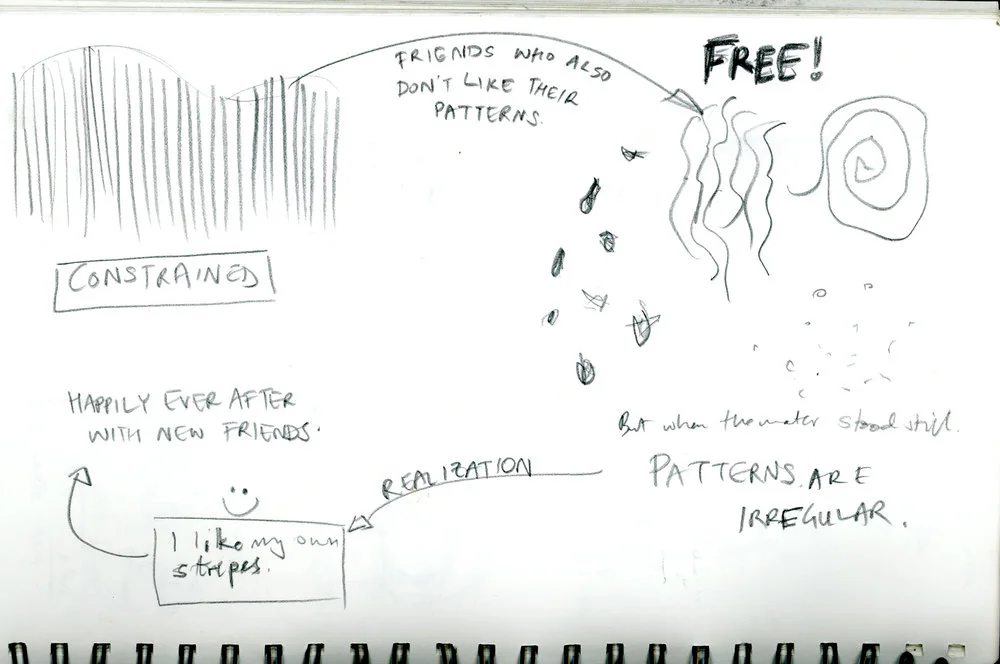 FRIENDS WHO ALSO
DON'T LIKE THEIR
PATTERNS.
FREE!
CONSTRAINED
But when the water stood still.
PATTERNS ARE
IRREGULAR.
REALIZATION
I like my own
stripes.
HAPPILY EVER AFTER
WITH NEW FRIENDS.